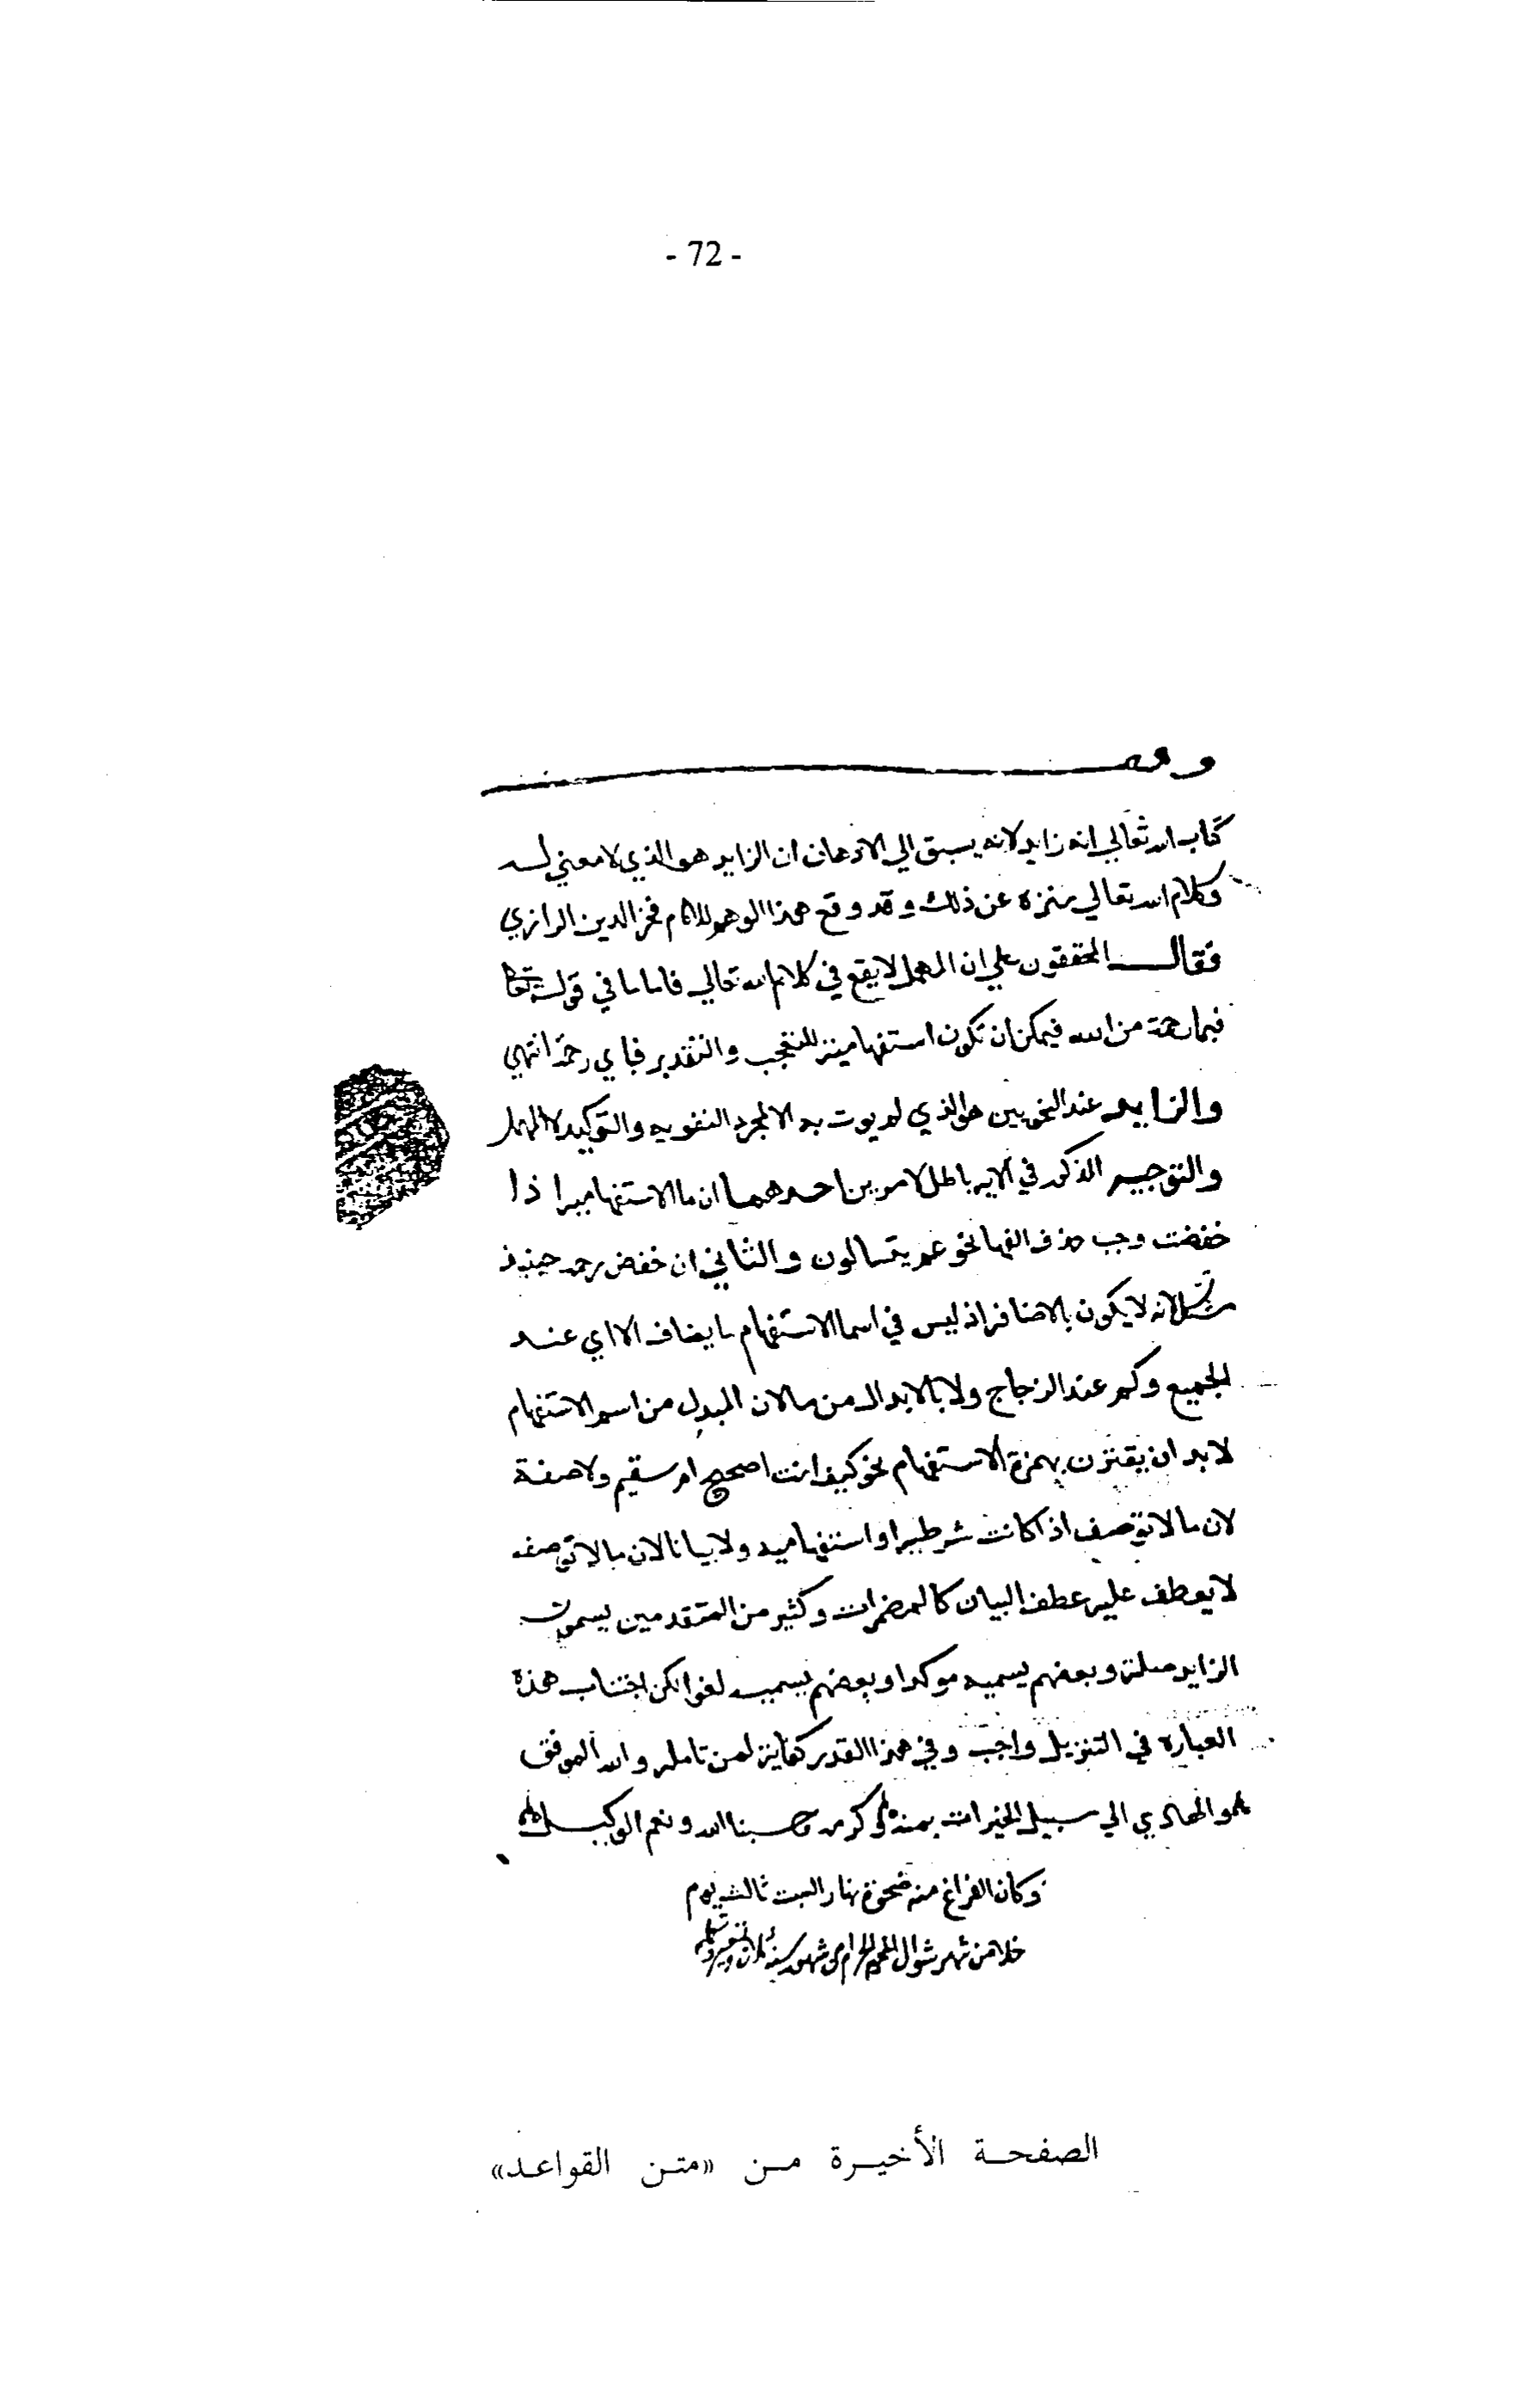 - 72 -
وقف
كتاب الله تعالي انه زايد لانه يسبق الي الاذهان ان الزايد هو الذي لا معني له
وكلام الله تعالي منزه عن ذلك وقد وقع هذا الوهم للامام فخر الدين الرازي
فقال المحققون علي ان المهمل لا يقع في كلام الله تعالي فاما ما في قوله تعالي
فبما رحمة من الله فيمكن ان تكون استفهامية للتعجب والتقدير فباي رحمة انتهي
والزايد عند النحويين هو الذي لم يوت به الا لمجرد التقويه والتوكيد لا المهمل
والتوجيه المذكور في الايه باطل لامرين احدهما ان ما الاستفهاميه اذا
خفضت وجب حذف الفها نحو عم يتسالون والثاني ان خفض رحمة حينيذ
مشكل لانه لا يكون بالاضافة اذ ليس في اسما الاستفهام ما يضاف الا اي عند
الجميع وكم عند الزجاج ولا بالابدال من ما لان المبدل من اسم الاستفهام
لا بد ان يقترن بهمزة الاستفهام نحو كيف انت اصحيح ام سقيم ولا صفة
لان ما لا توصف اذا كانت شرطيه او استفهاميه ولا بيانا لان ما لا توصف
لا يعطف عليه عطف البيان كالمضمرات وكثير من المتقدمين يسمون
الزايد صلة وبعضهم يسميه موكدا وبعضهم يسميه لغوا لكن اجتناب هذه
العباره في التنزيل واجب وفي هذا القدر كفاية لمن تامله والله الموفق
هو الهادي الي سبيل الخيرات بمنه وكرمه وحسبنا الله ونعم الوكيل
وكان الفراغ منه ضحوة نهار السبت ثالث يوم
خلا من شهر شوال من شهور سنة
الصفحة الأخيرة من «متن القواعد»